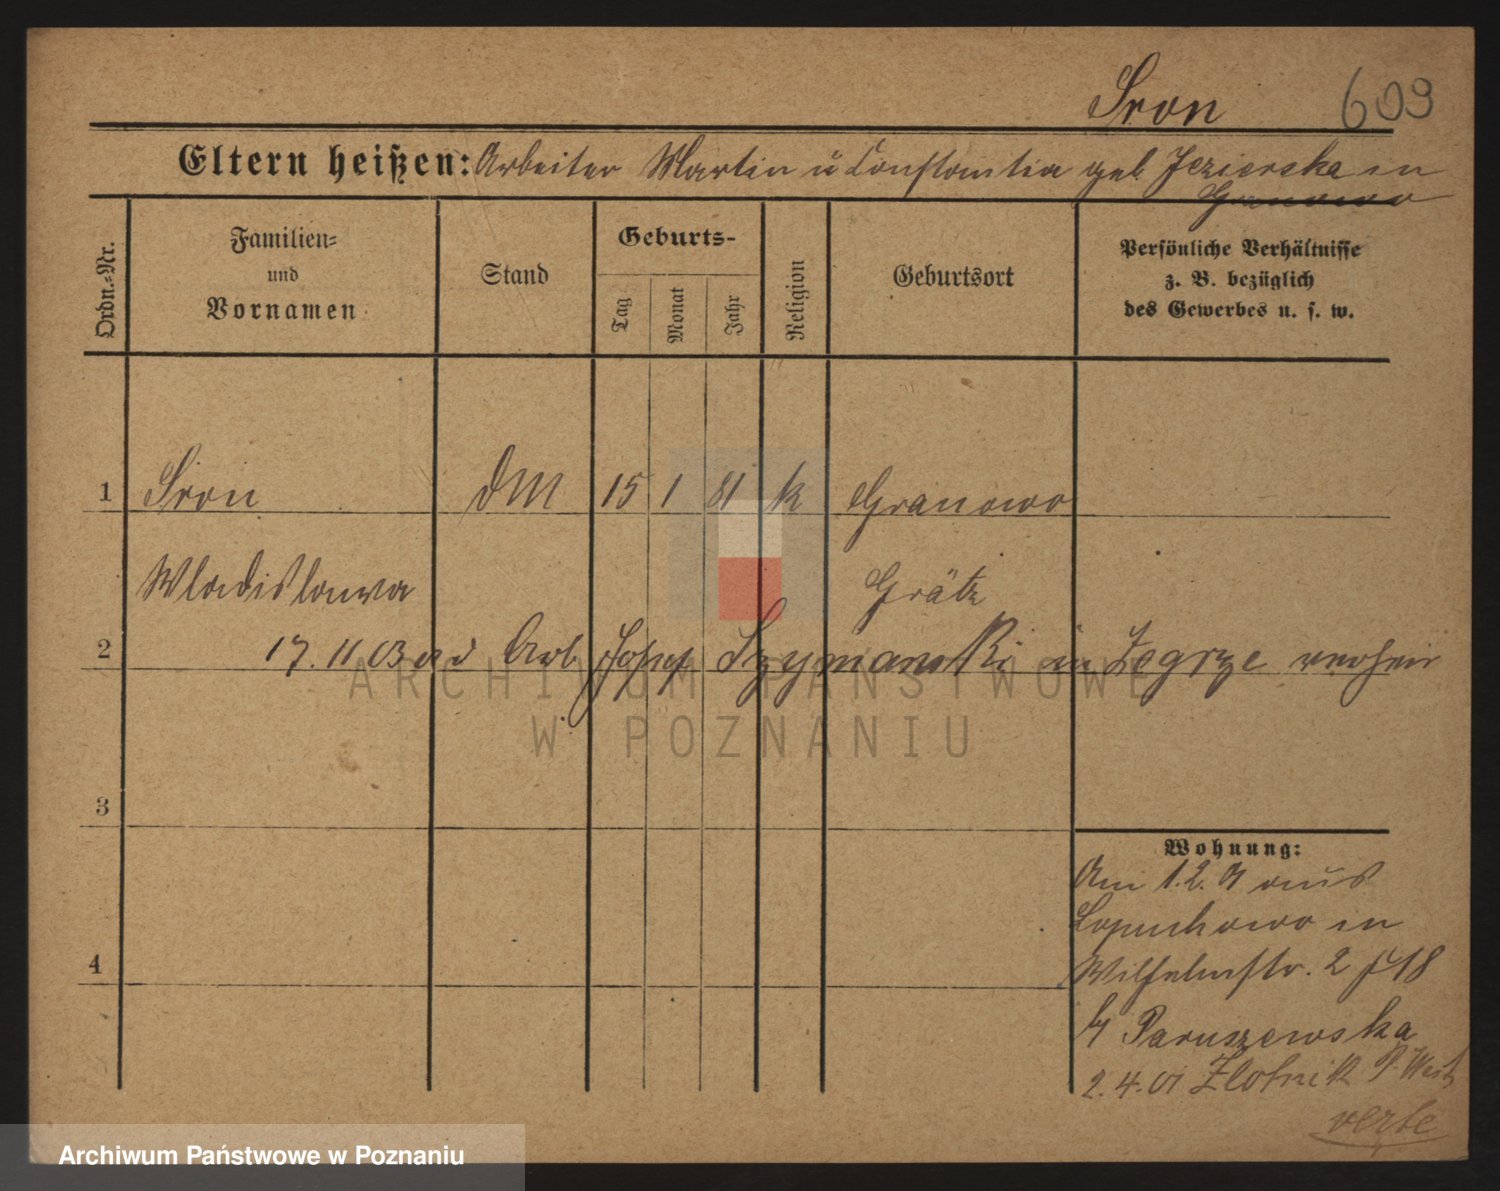 Sron 609
Eltern heißen: Arbeiter Martin u Constantia geb Jezierska in
Granowo
Ordn.-Nr.
Familien-
und
Vornamen
Stand
Geburts-
Tag
Monat
Jahr
Religion
Geburtsort
Persönliche Verhältnisse
z. B. bezüglich
des Gewerbes u. s. w.
1 Sron DM 15 1 81 k Granowo
Wladislawa Grätz
2 17.11.03 Arb Josef Szymanski in Zegrze verheir
ARCHIWUM PAŃSTWOWE
W POZNANIU
3
Wohnung:
Am 1.2. aus
Lopuchowo in
4
Wilhelmstr. 2 18
b/ Paruszewska
2.4.01 Zlotnik P. West
Archiwum Państwowe w Poznaniu